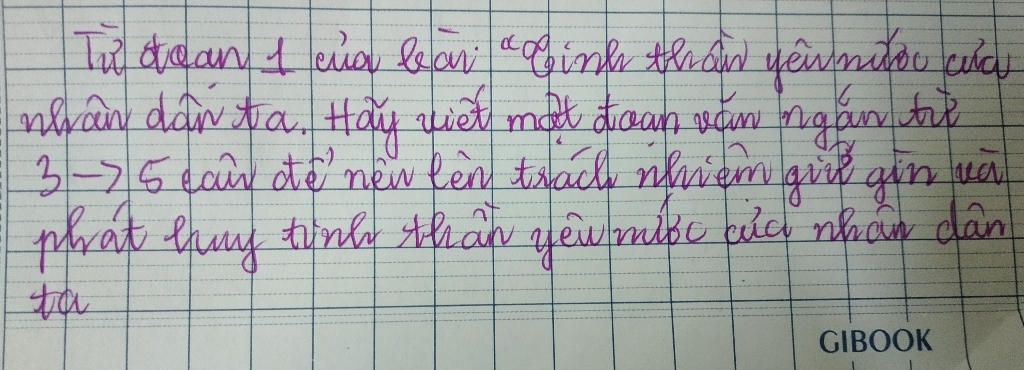 Từ đoạn 1 của bài: "Tinh thần yêu nước của
nhân dân ta. Hãy viết một đoạn văn ngắn từ
3 → 5 câu để nêu lên trách nhiệm giữ gìn và
phát huy tinh thần yêu nước của nhân dân
ta
GIBOOK